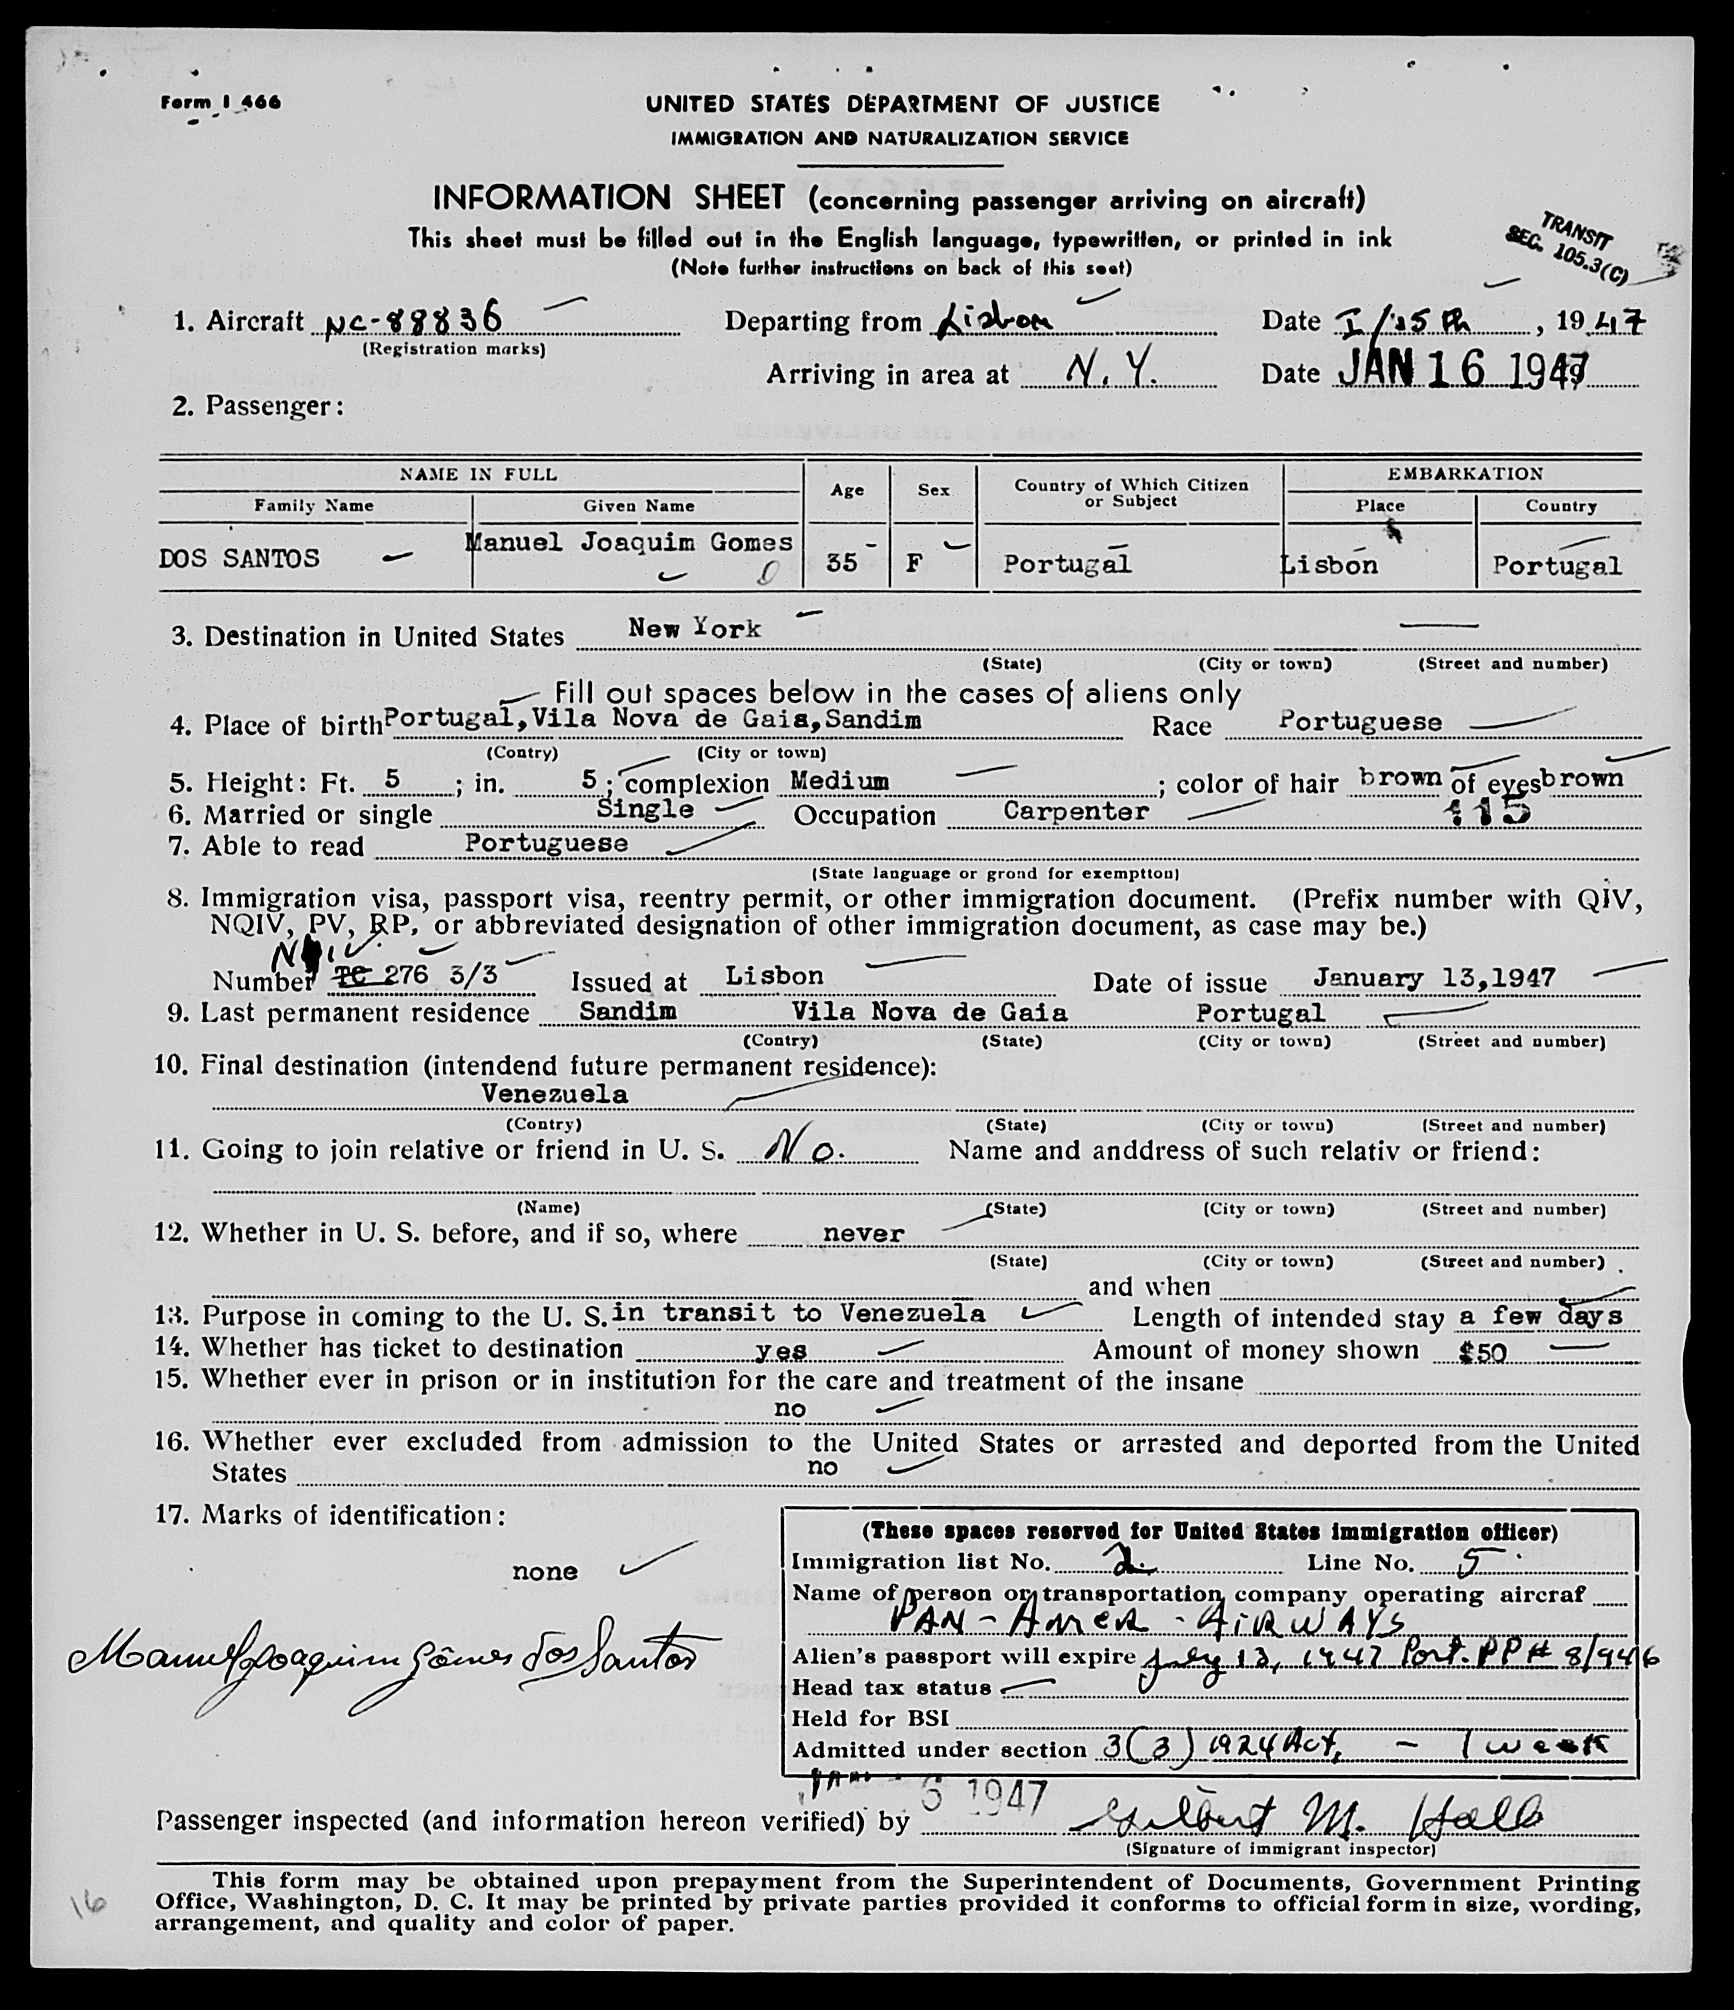 Form I 466
UNITED STATES DEPARTMENT OF JUSTICE
IMMIGRATION AND NATURALIZATION SERVICE
INFORMATION SHEET (concerning passenger arriving on aircraft)
This sheet must be filled out in the English language, typewritten, or printed in ink
(Note further instructions on back of this seet)
TRANSIT
SEC. 105.3(C)
1. Aircraft NC-88836 Departing from Lisbon Date I/15th, 1947
(Registration marks)
Arriving in area at N.Y. Date JAN 16 1947
2. Passenger:
NAME IN FULL Age Sex Country of Which Citizen or Subject EMBARKATION
Family Name Given Name Place Country
DOS SANTOS Manuel Joaquim Gomes 35 F Portugal Lisbon Portugal
3. Destination in United States New York
(State) (City or town) (Street and number)
Fill out spaces below in the cases of aliens only
4. Place of birth Portugal, Vila Nova de Gaia, Sandim Race Portuguese
(Contry) (City or town)
5. Height: Ft. 5; in. 5; complexion Medium; color of hair brown of eyes brown
6. Married or single Single Occupation Carpenter 115
7. Able to read Portuguese
(State language or grond for exemption)
8. Immigration visa, passport visa, reentry permit, or other immigration document. (Prefix number with QIV,
NQIV, PV, RP, or abbreviated designation of other immigration document, as case may be.)
Number TC 276 3/3 Issued at Lisbon Date of issue January 13,1947
9. Last permanent residence Sandim Vila Nova de Gaia Portugal
(Contry) (State) (City or town) (Street and number)
10. Final destination (intendend future permanent residence):
Venezuela
(Contry) (State) (City or town) (Street and number)
11. Going to join relative or friend in U. S. No. Name and anddress of such relativ or friend:
(Name) (State) (City or town) (Street and number)
12. Whether in U. S. before, and if so, where never
(State) (City or town) (Street and number)
and when
13. Purpose in coming to the U. S. in transit to Venezuela Length of intended stay a few days
14. Whether has ticket to destination yes Amount of money shown $50
15. Whether ever in prison or in institution for the care and treatment of the insane
no
16. Whether ever excluded from admission to the United States or arrested and deported from the United
States no
17. Marks of identification:
none
Manuel Joaquim Gomes dos Santos
(These spaces reserved for United States immigration officer)
Immigration list No. 2. Line No. 5
Name of person or transportation company operating aircraf
PAN-AMER-AIRWAYS
Alien's passport will expire July 13, 1947 Port. PP# 8/946
Head tax status
Held for BSI
Admitted under section 3(3) 1924 Act, - 1 week
1947
Passenger inspected (and information hereon verified) by Gilbert M. Hall
(Signature of immigrant inspector)
This form may be obtained upon prepayment from the Superintendent of Documents, Government Printing
Office, Washington, D. C. It may be printed by private parties provided it conforms to official form in size, wording,
arrangement, and quality and color of paper.
16